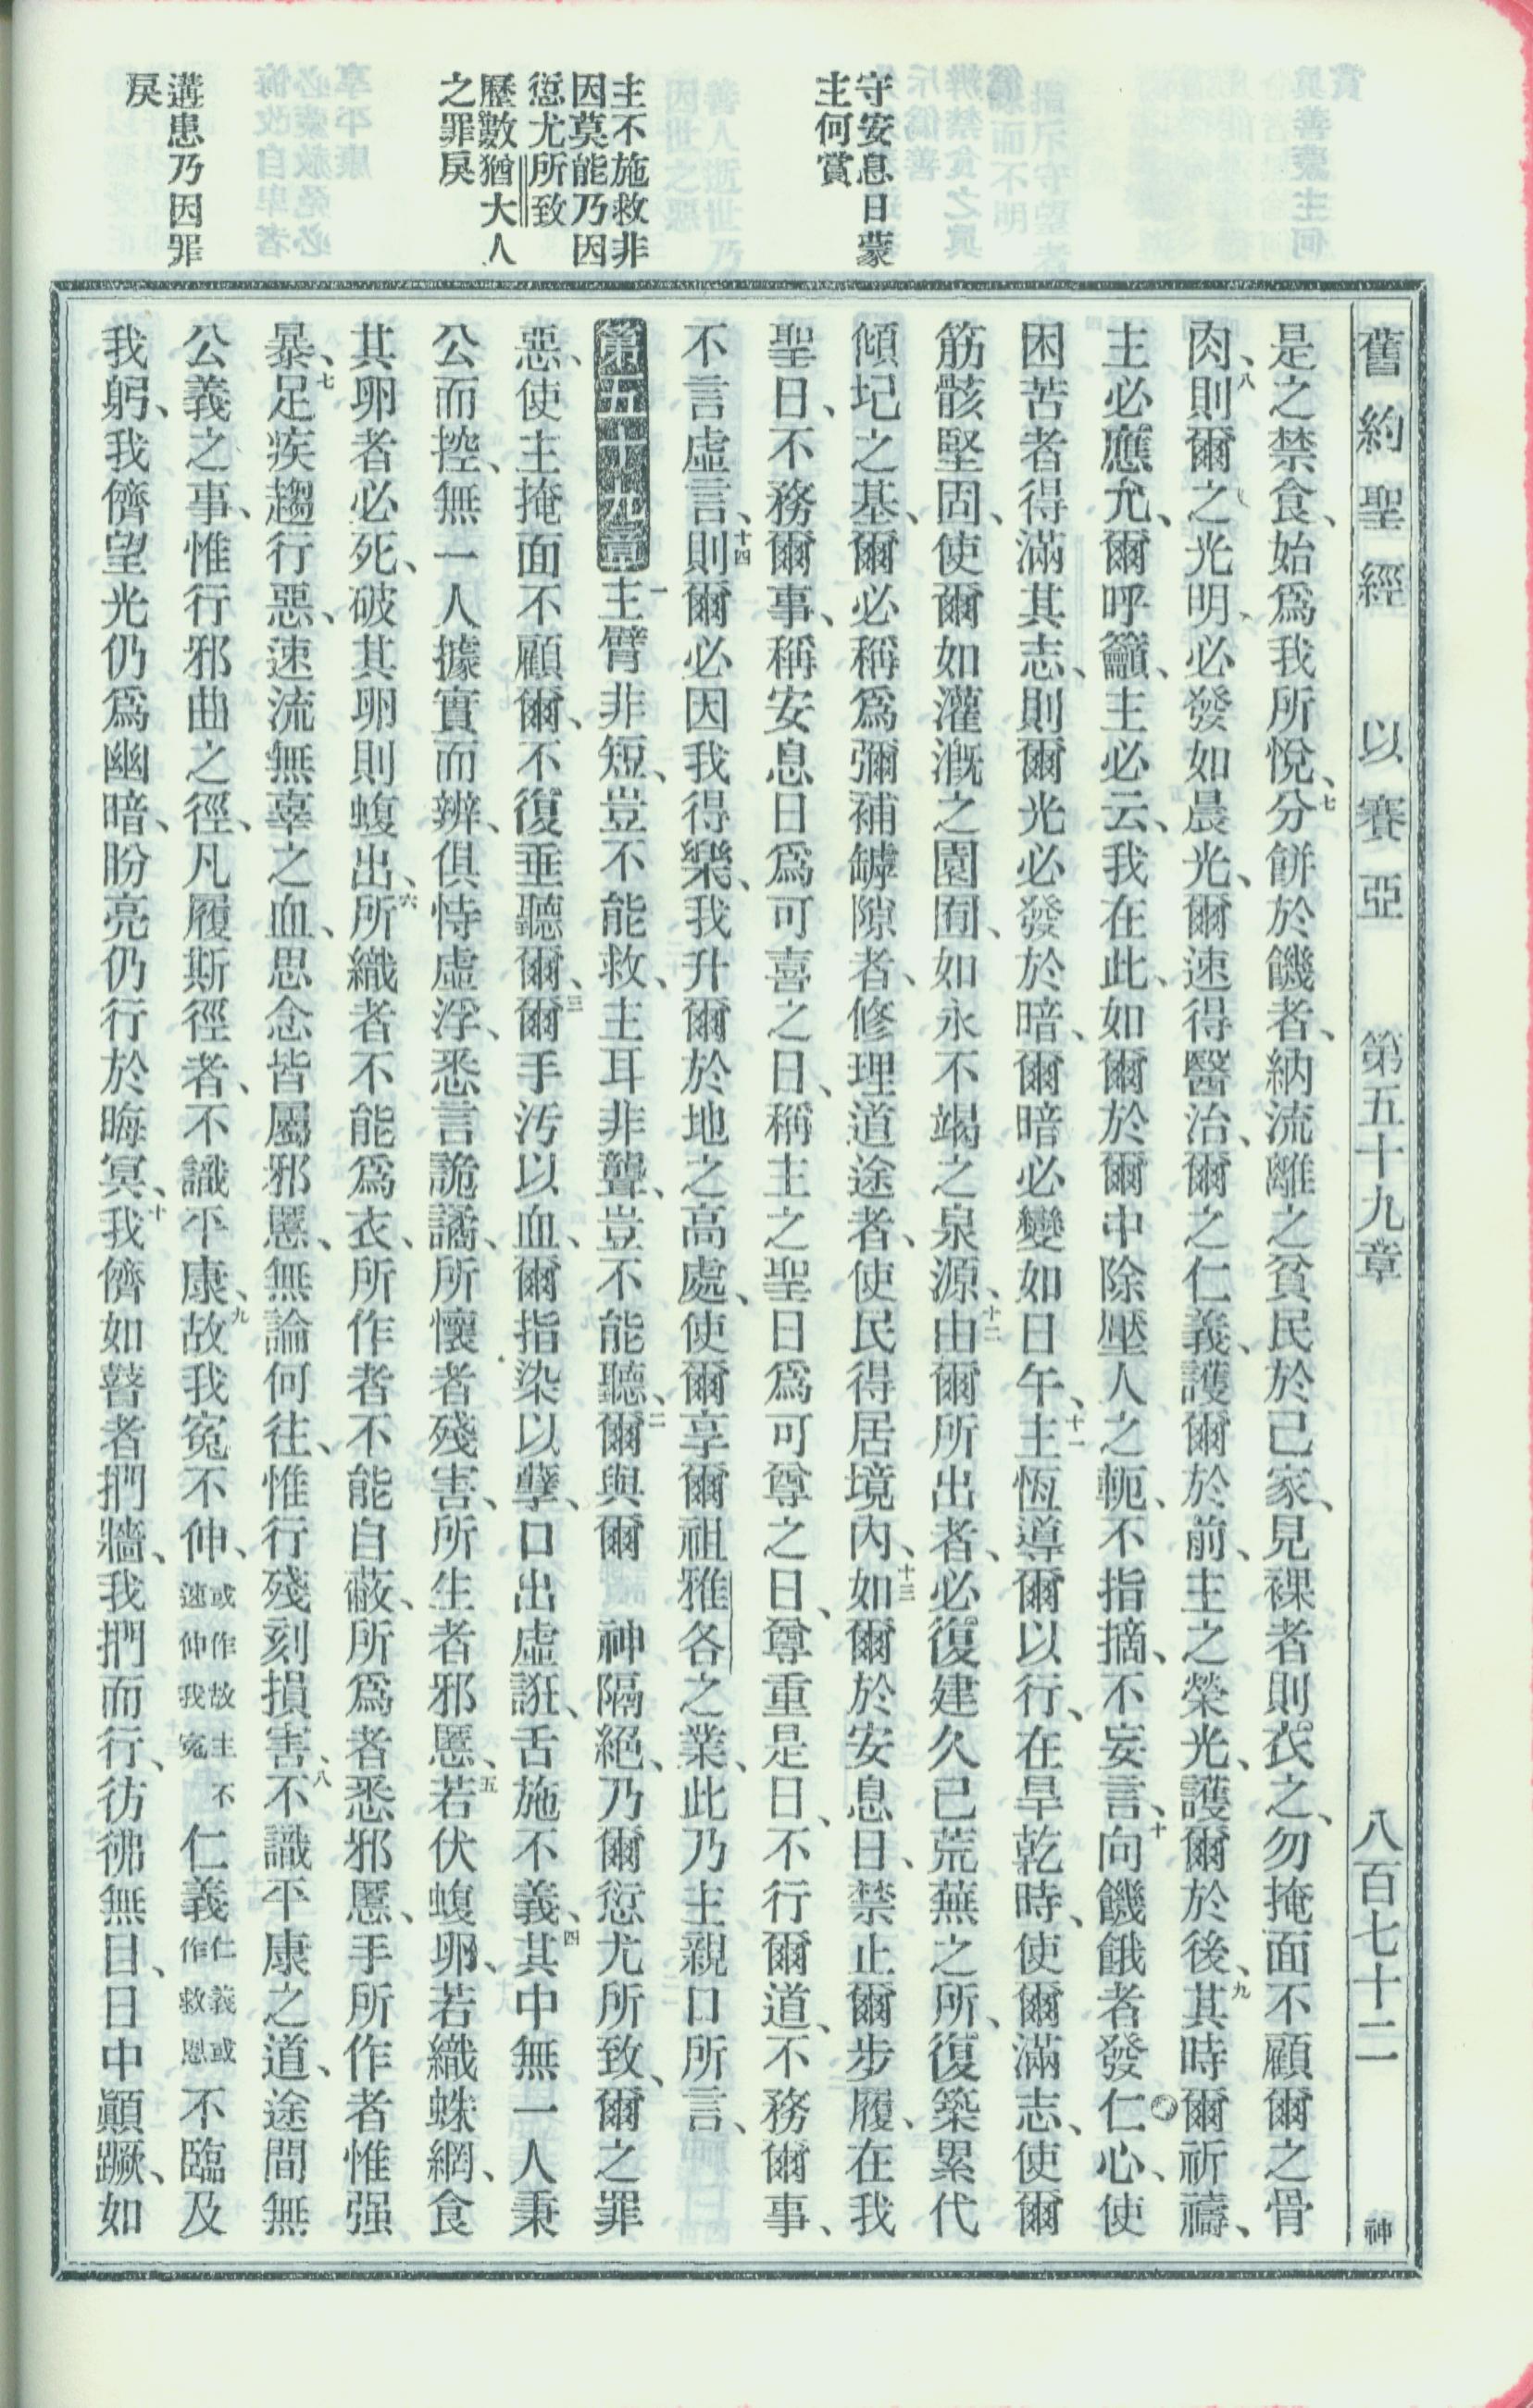 舊約聖經　以賽亞　第五十九章　八百七十二　神
守安息日蒙
主何賞
主不施救非
因莫能乃因
愆尤所致
歷數猶大人
之罪戾
遘患乃因罪
戾
是之禁食、始爲我所悅、七分餅於饑者、納流離之貧民於己家、見裸者則衣之、勿掩面不顧爾之骨
肉、八則爾之光明、必發如晨光、爾速得醫治、爾之仁義、護爾於前、主之榮光、護爾於後、九其時爾祈禱、
主必應允、爾呼籲、主必云、我在此、如爾於爾中除壓人之軛、不指摘、不妄言、十向饑餓者發仁心、使
困苦者得滿其志、則爾光必發於暗、爾暗必變如日午、十一主恆導爾以行、在旱乾時、使爾滿志、使爾
筋骸堅固、使爾如灌漑之園囿、如永不竭之泉源、十二由爾所出者、必復建久已荒蕪之所、復築累代
傾圮之基、爾必稱爲彌補罅隙者、修理道途者、使民得居境內、十三如爾於安息日、禁止爾步履、在我
聖日、不務爾事、稱安息日爲可喜之日、稱主之聖日爲可尊之日、尊重是日、不行爾道、不務爾事、
不言虛言、十四則爾必因我得樂、我升爾於地之高處、使爾享爾祖雅各之業、此乃主親口所言、
第五十九章　一主臂非短、豈不能救、主耳非聾、豈不能聽、二爾與爾　神隔絕、乃爾愆尤所致、爾之罪
惡、使主掩面不顧爾、不復垂聽爾、三爾手汚以血、爾指染以孽、口出虛誑、舌施不義、四其中無一人秉
公而控、無一人據實而辨、俱恃虛浮、悉言詭譎、所懷者殘害、所生者邪慝、五若伏蝮卵、若織蛛網、食
其卵者必死、破其卵則蝮出、六所織者不能爲衣、所作者不能自蔽、所爲者悉邪慝、手所作者惟强
暴、七足疾趨行惡、速流無辜之血、思念皆屬邪慝、無論何往、惟行殘刻損害、八不識平康之道、途間無
公義之事、惟行邪曲之徑、凡履斯徑者、不識平康、九故我寃不伸、或作故主不速伸我寃仁義仁義或作救恩不臨及
我躬、我儕望光仍爲幽暗、盼亮仍行於晦冥、十我儕如瞽者捫牆、我捫而行、彷彿無目、日中顚蹶、如